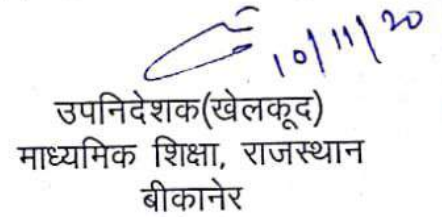 10/11/20
उपनिदेशक(खेलकूद)
माध्यमिक शिक्षा, राजस्थान
बीकानेर